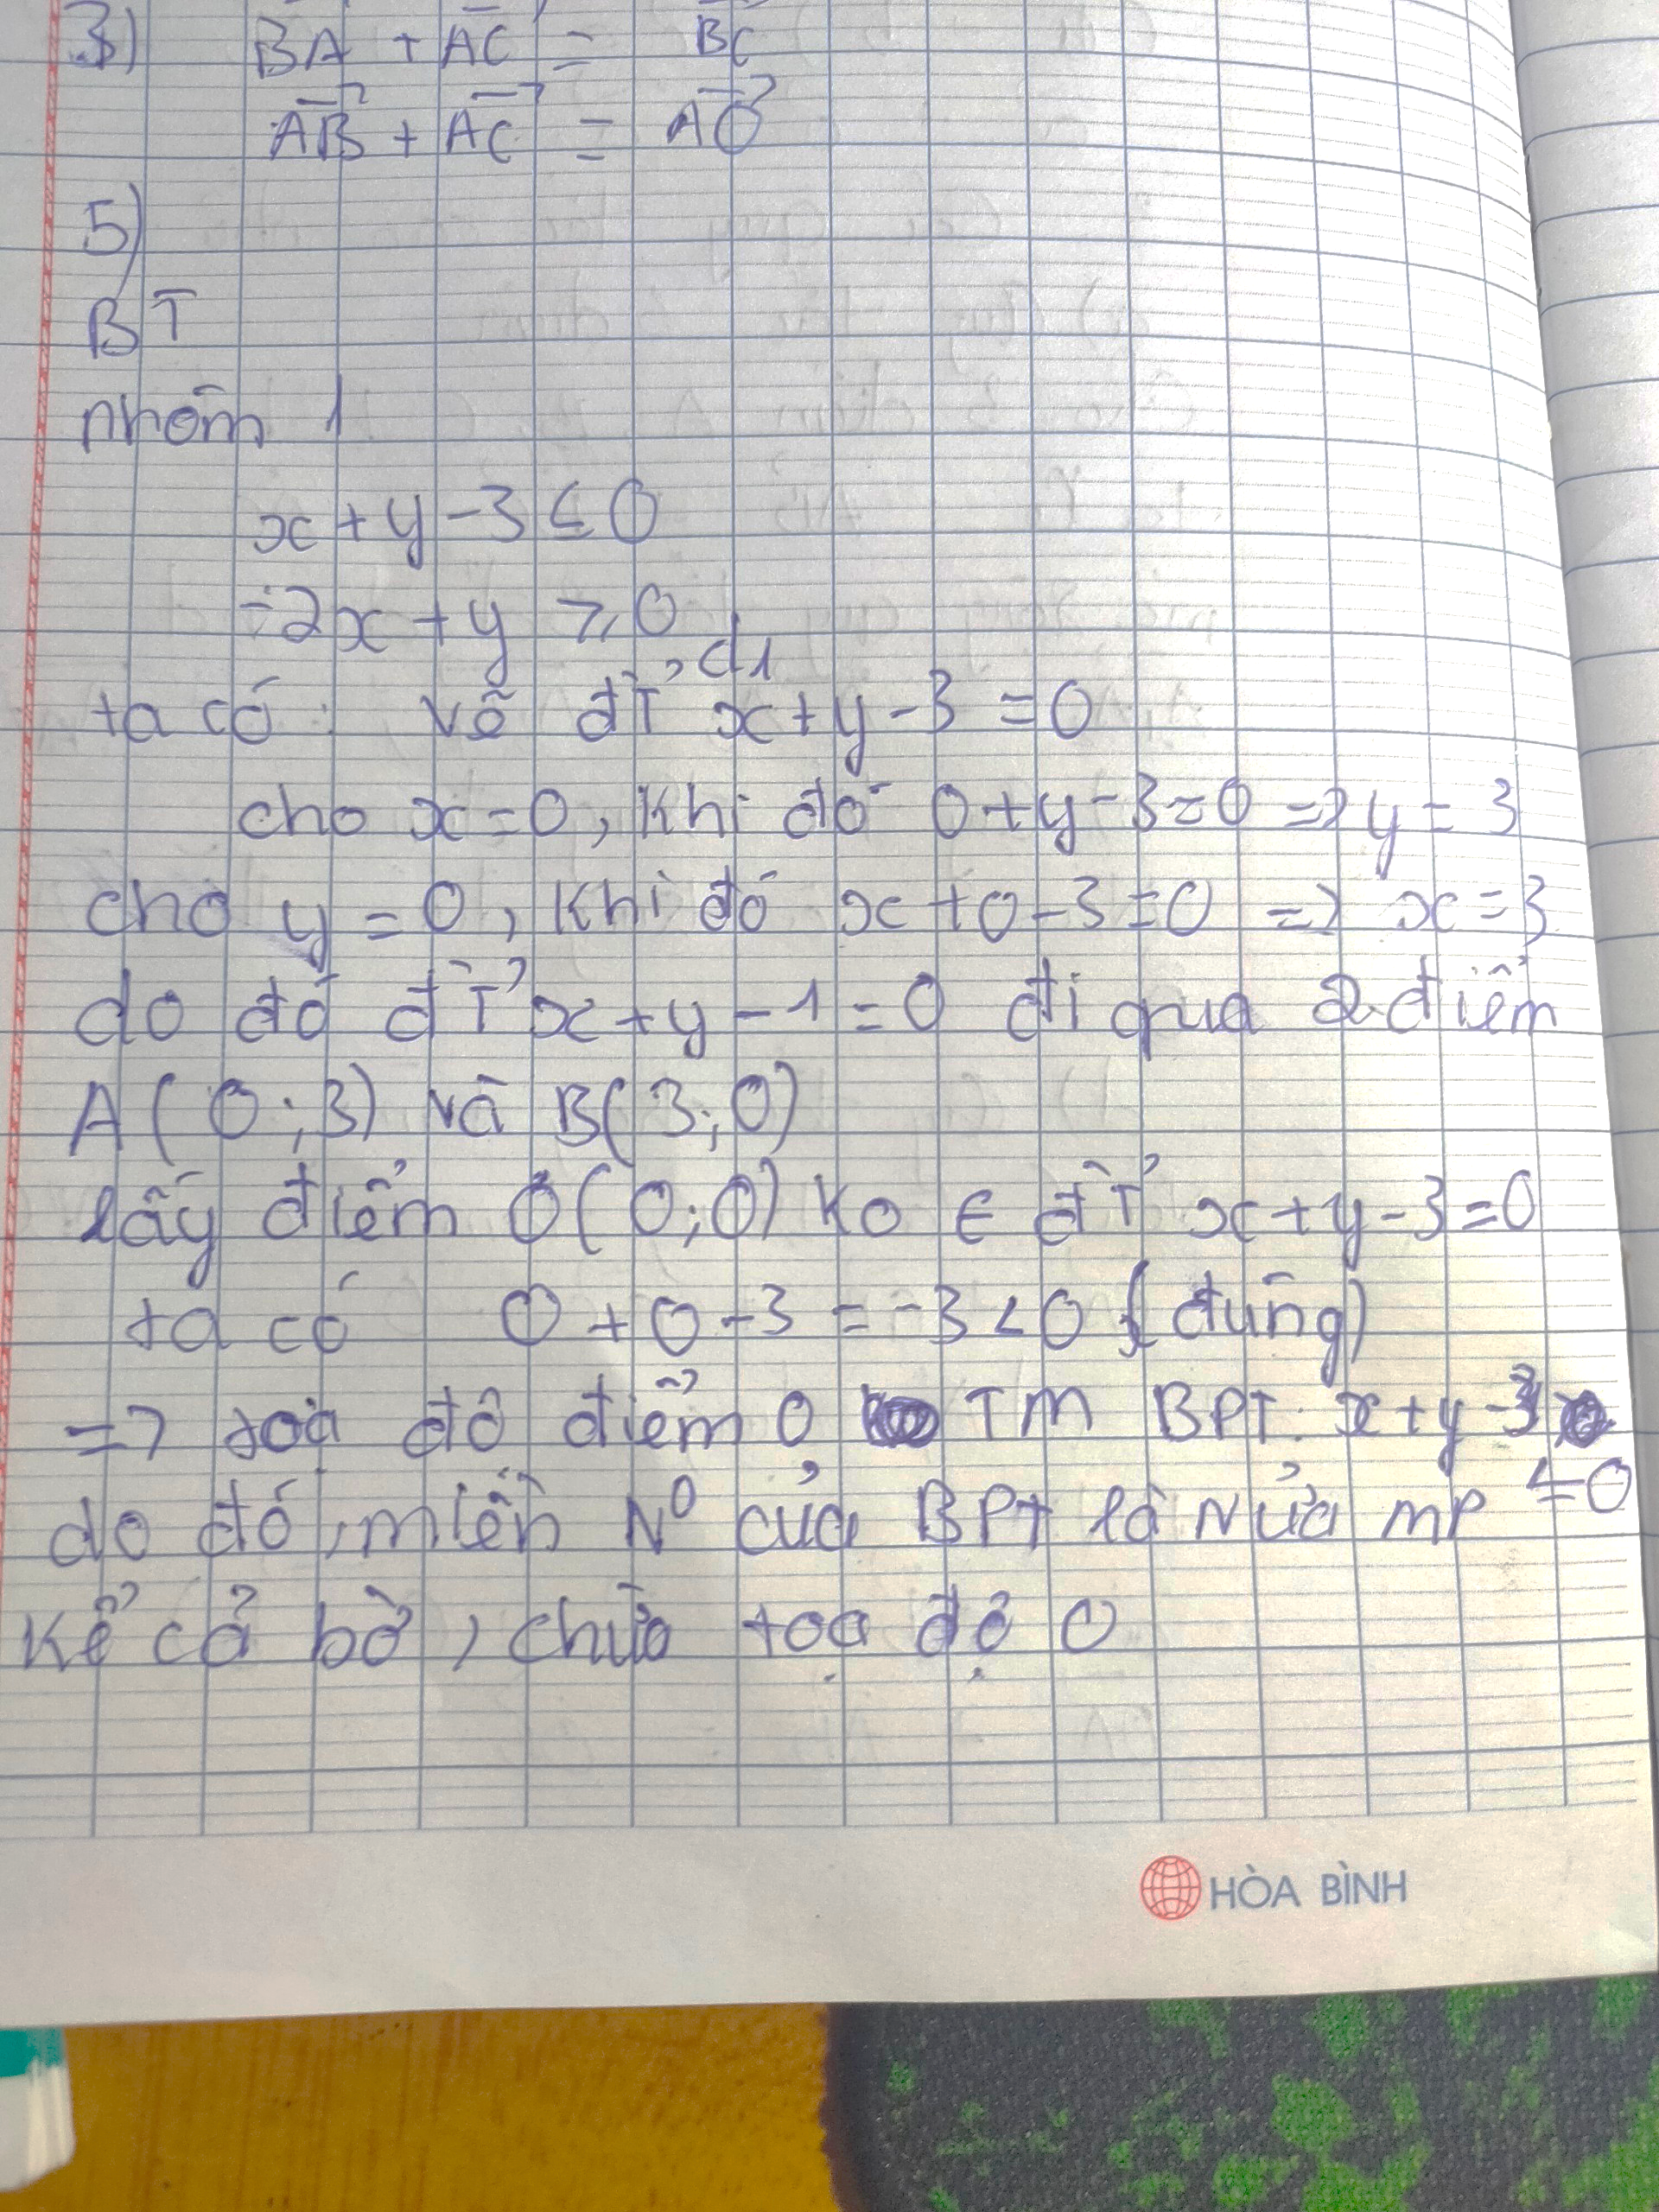 3) BA + AC = BC
AB + AC = AO
5)
BT
nhóm 1
x + y - 3 ≤ 0
-2x + y ≥ 0
ta có: vẽ đT', d1 x + y - 3 = 0
cho x = 0, khi đó 0 + y - 3 = 0 => y = 3
cho y = 0, khi đó x + 0 - 3 = 0 => x = 3
do đó đT' x + y - 1 = 0 đi qua 2 điểm
A ( 0 ; 3 ) và B( 3 ; 0 )
lấy điểm O ( 0 ; 0 ) ko ∈ đT' x + y - 3 = 0
ta có 0 + 0 - 3 = -3 < 0 (đúng)
=> toạ độ điểm O TM BPT: x + y - 3
≤ 0
do đó, miền N⁰ của BPT là Nửa mp
kể cả bờ, chứa toạ độ O
HÒA BÌNH